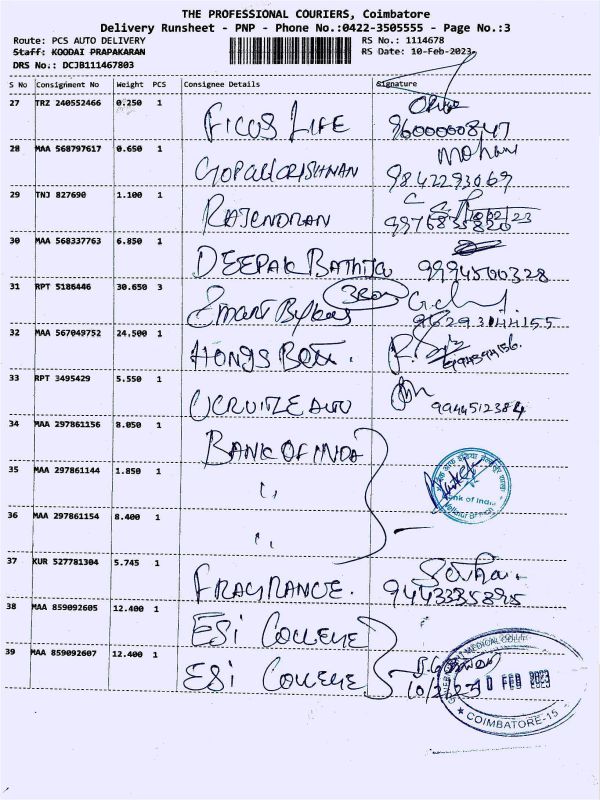 THE PROFESSIONAL COURIERS, Coimbatore
Delivery Runsheet - PNP - Phone No.:0422-3505555 - Page No.:3
Route: PCS AUTO DELIVERY
RS No.: 1114678
Staff: KOODAI PRAPAKARAN
RS Date: 10-Feb-2023
DRS No.: DCJB111467803
S No Consignment No Weight PCS Consignee Details Signature
27 TRZ 240552466 0.250 1 FICUS LIFE
9600000847
28 MAA 568797617 0.650 1 GOPALKRISHNAN Mohan
9842293069
29 TNJ 827690 1.100 1 RAJENDRAN 10/02/23
9976835820
30 MAA 568337763 6.850 1 DEEPAK BATHIJA 9994500328
31 RPT 5186446 30.650 3 Smart Bykes 3Box
9629344155
32 MAA 567049752 24.500 1 HONGS BOTT.
33 RPT 3495429 5.550 1 UCRUITZE AUTO 9944512384
34 MAA 297861156 8.050 1 BANK OF INDIA
35 MAA 297861144 1.850 1 "
Bank of India
36 MAA 297861154 8.400 1 "
37 KUR 527781304 5.745 1 FRAGRANCE.
9443335895
38 MAA 859092605 12.400 1 ESI COLLEGE
39 MAA 859092607 12.400 1 ESI COLLEGE
10/2/23
MEDICAL COLLEGE
10 FEB 2023
★ COIMBATORE-15